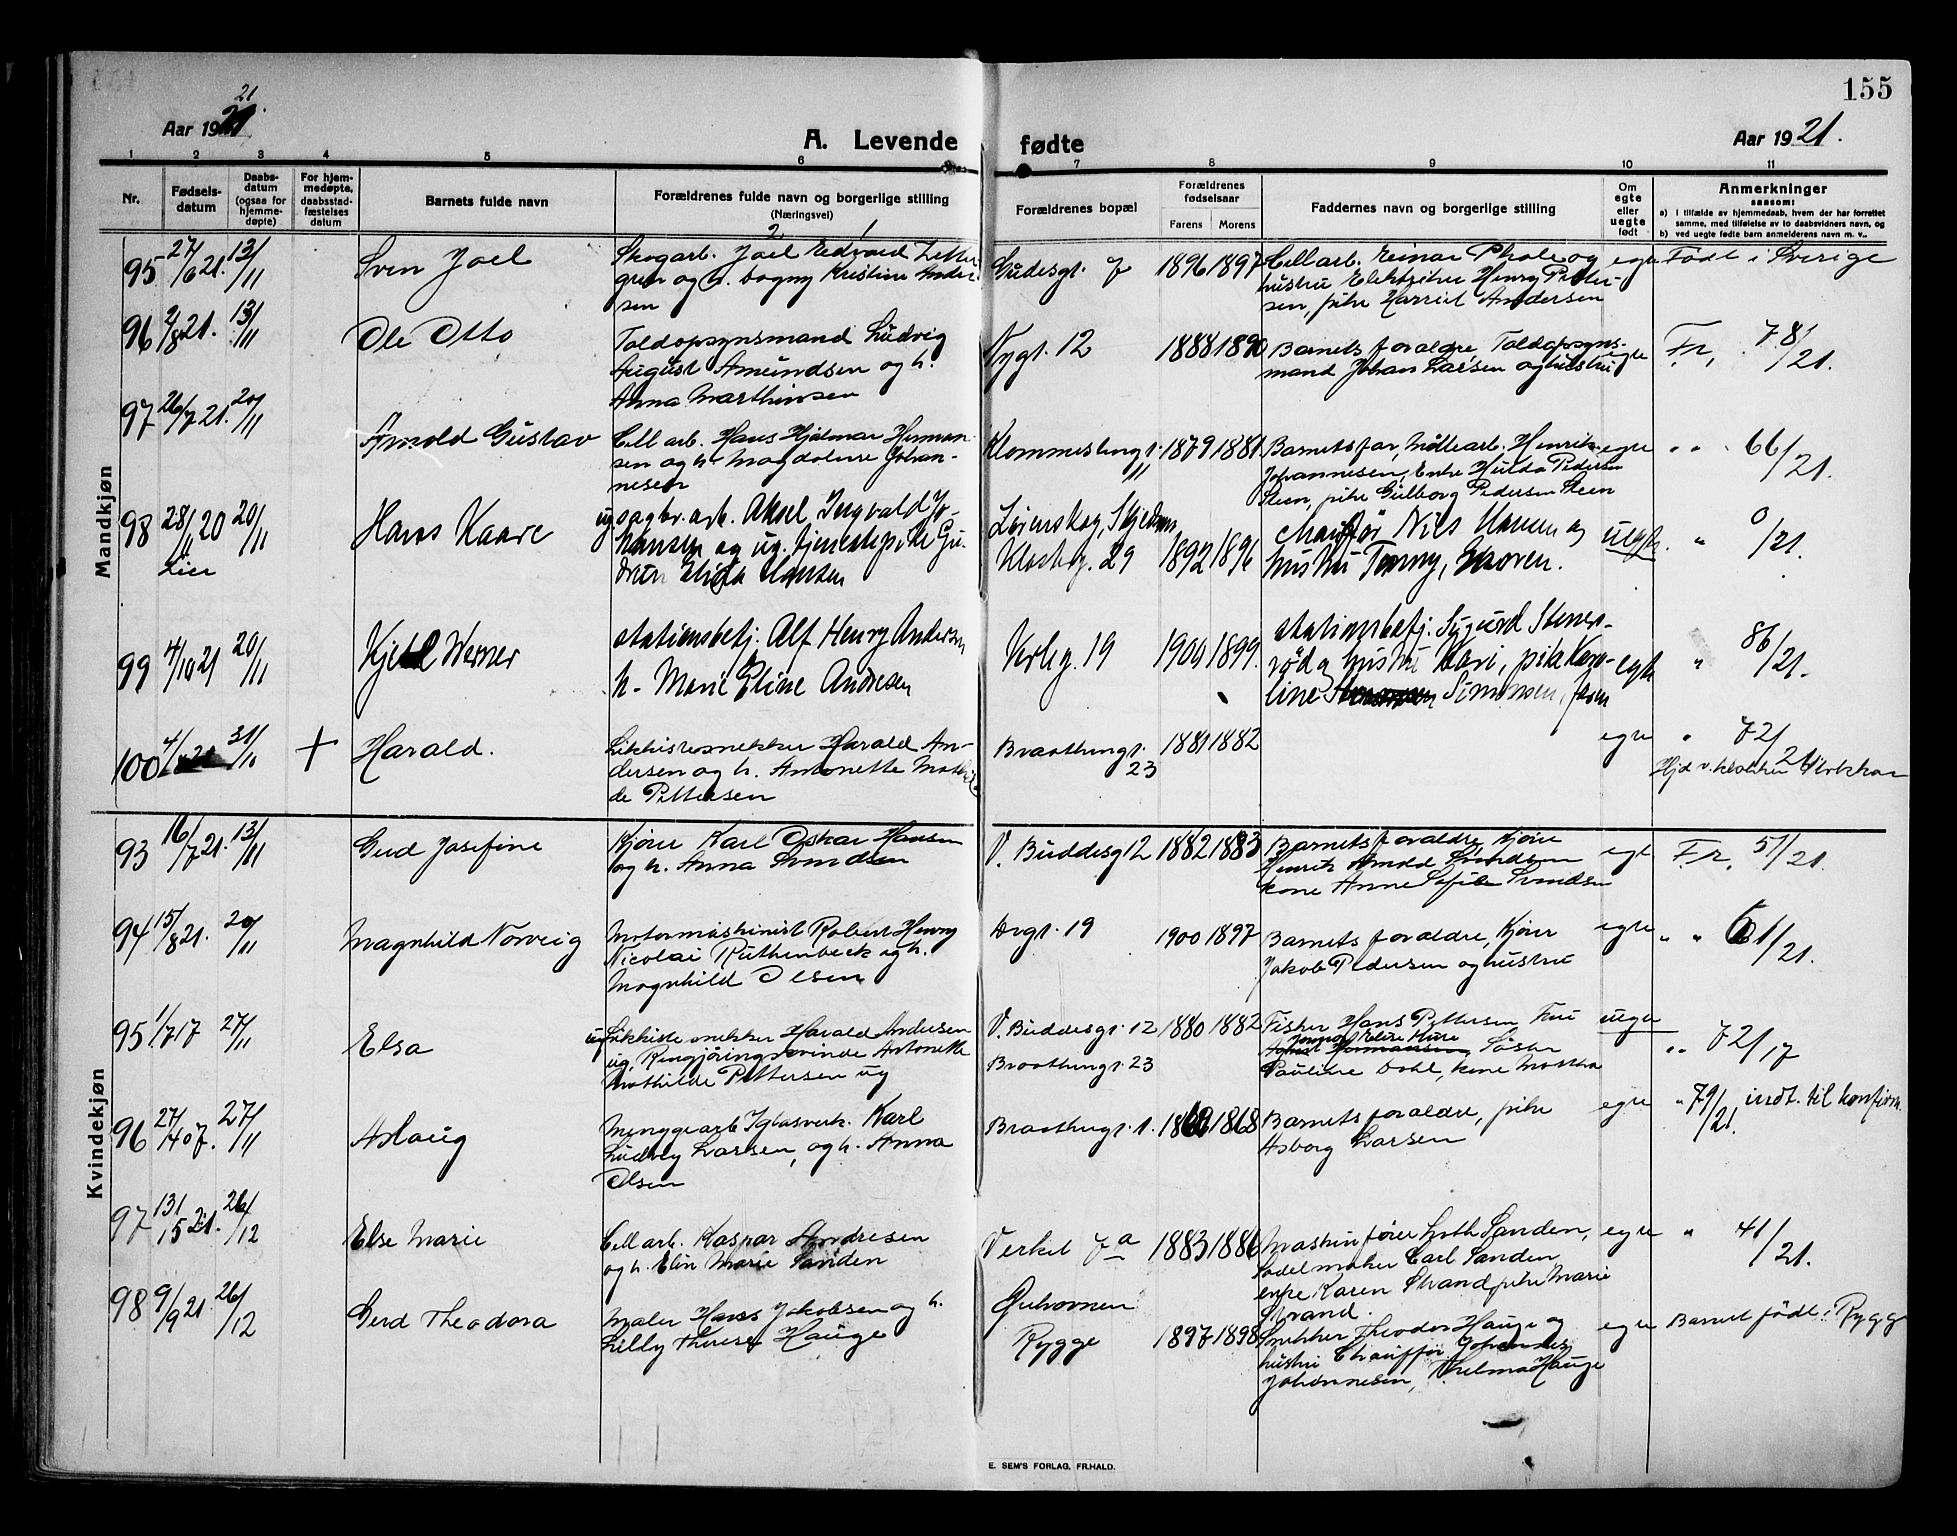 155
21
Aar 1921.
A. Levende fødte
Aar 1921.
1 2 3 4 5 6 7 8 9 10 11
Nr.
Fødsels-
datum
Daabs-
datum
(ogsaa for
hjemme-
døpte)
For hjem-
medøpte,
daabsstad-
fæstelses
datum
Barnets fulde navn
Forældrenes fulde navn og borgerlige stilling
(Næringsvei)
Forældrenes bopæl
Forældrenes
fødselsaar
Farens Morens
Faddernes navn og borgerlige stilling
Om
egte
eller
uegte
født
Anmerkninger
saasom:
a) i tilfælde av hjemmedaab, hvem der har forrettet
samme, med tilføielse av to daabsvidners navn, og
b) ved uegte født barn anmelderens navn m. v..
Mandkjøn
2 1
95 27/6 21. 13/11 Sven Joel
Skogarb. Joel Edvard Zetter
gren og h. Dagny Kristine Ander
sen
Gudesgt. 7 1896 1897
Cellarb. Einar og
hustru Elektriker Henry Petter-
sen, pike Harriet Andersen
egte Født i Sverige
96 2/8 21. 13/11 Ole Otto
Toldopsynsmand Ludvig
August Amundsen og h.
Anna Marthinsen
Nygt. 12 1888 1890
Barnets forældre, Toldopsyns-
mand Johan Larsen og hustru
egte Fr. 78/21.
97 26/7 21. 20/11 Arnold Gustav
Cell arb. Hans Hjalmar Herman
sen og h. Magdalene Johan-
nesen
Glommesteng 11 1879 1881
Barnets far, Møllearb. Henrik
Johannesen, Enke Hulda Pedersen
Steen, pike Gulborg Pedersen Steen
egte " " 66/21.
98 28/11 20 20/11 Hans Kaare
Lier
ug sagbr. arb. Aksel Ingvald Jo-
hansen og ug. tjenestepike Gu-
drun Elida Hansen
Lørenskog, Skjedsmo
Klosterg. 29 1892 1896
Chauffør Nils Hansen og
hustru Tommy, moren.
uegte. " 0/21.
99 4/10 21 20/11 Kjell Werner
stationsbetj. Alf Henry Andersen
h. Marie Eline Andresen
Verksg. 19 1900 1899.
stationsbetj. Sigurd Stener-
rød og hustru Kari, pike Karo-
line Simonsen, faren
egte " 86/21.
100 4/ 21 31/10 + Harald.
Likkistesnekker Harald An-
dersen og h. Antonette Mathil
de Pettersen
Braathengt.
23
1881 1882
egte " 72/21
Hjd v. klokker Klokkar
Kvindekjøn
93 16/7 21. 13/11 Gerd Josefine
Kjører Karl Oskar Hansen
og h. Anna Svendsen
V. Buddesg 12 1882 1883
Barnets forældre, Kjører
Henrik Arnold Svendsen
kone Anne Sofie Svendsen
egte Fr. 51/21.
94 15/8 21. 20/11 Magnhild Norveig
Motormaskinist Robert Henry
Nicolai Ruthenbeck og h.
Magnhild Olsen
Argt. 19 1900 1897
Barnets forældre, Kjører
Jakob Pedersen og hustru
egte " " 61/21.
95 1/7 17 27/11 Elsa
ug Likkiste snekker Harald Andersen
ug. Rengjøringskvinde Antonette
Mathilde Pettersen ug
V. Buddesgt. 12 1880 1882
Braathengt. 23
Fisker Hans Pettersen Fru
Hermansen Søster
Pauline Dahl, kone Martha
uegte " 72/17
96 27/4 07. 27/11 Aslaug
Menggearb Iglasverk. Karl
Ludvig Larsen, og h. Anna
Olsen
Braathengt. 1. 1868
Barnets forældre, pike
Asborg Larsen
egte " 79/21. indt. til konfirm.
97 131/5 21. 26/12 Else Marie
Cellarb. Kaspar Andresen
og h. Elin Marie Sanden
Verket 7 a 1883 1886
Maskinfører Loth Sanden,
Sadelmaker Carl Sanden
enke Karen Strand pike Marie
Strand.
egte " 41/21.
98 9/9 21. 26/12 Gerd Theodora
Maler Hans Jakobsen og h.
Lilly Therese Hauge
Gulvovnen
Rygge 1897 1898
Snekker Theodor Hauge og
hustru Chauffør Johannes
Johannesen, Thelma Hauge
egte Barnet født i Rygge
E. SEM'S FORLAG, FR.HALD.